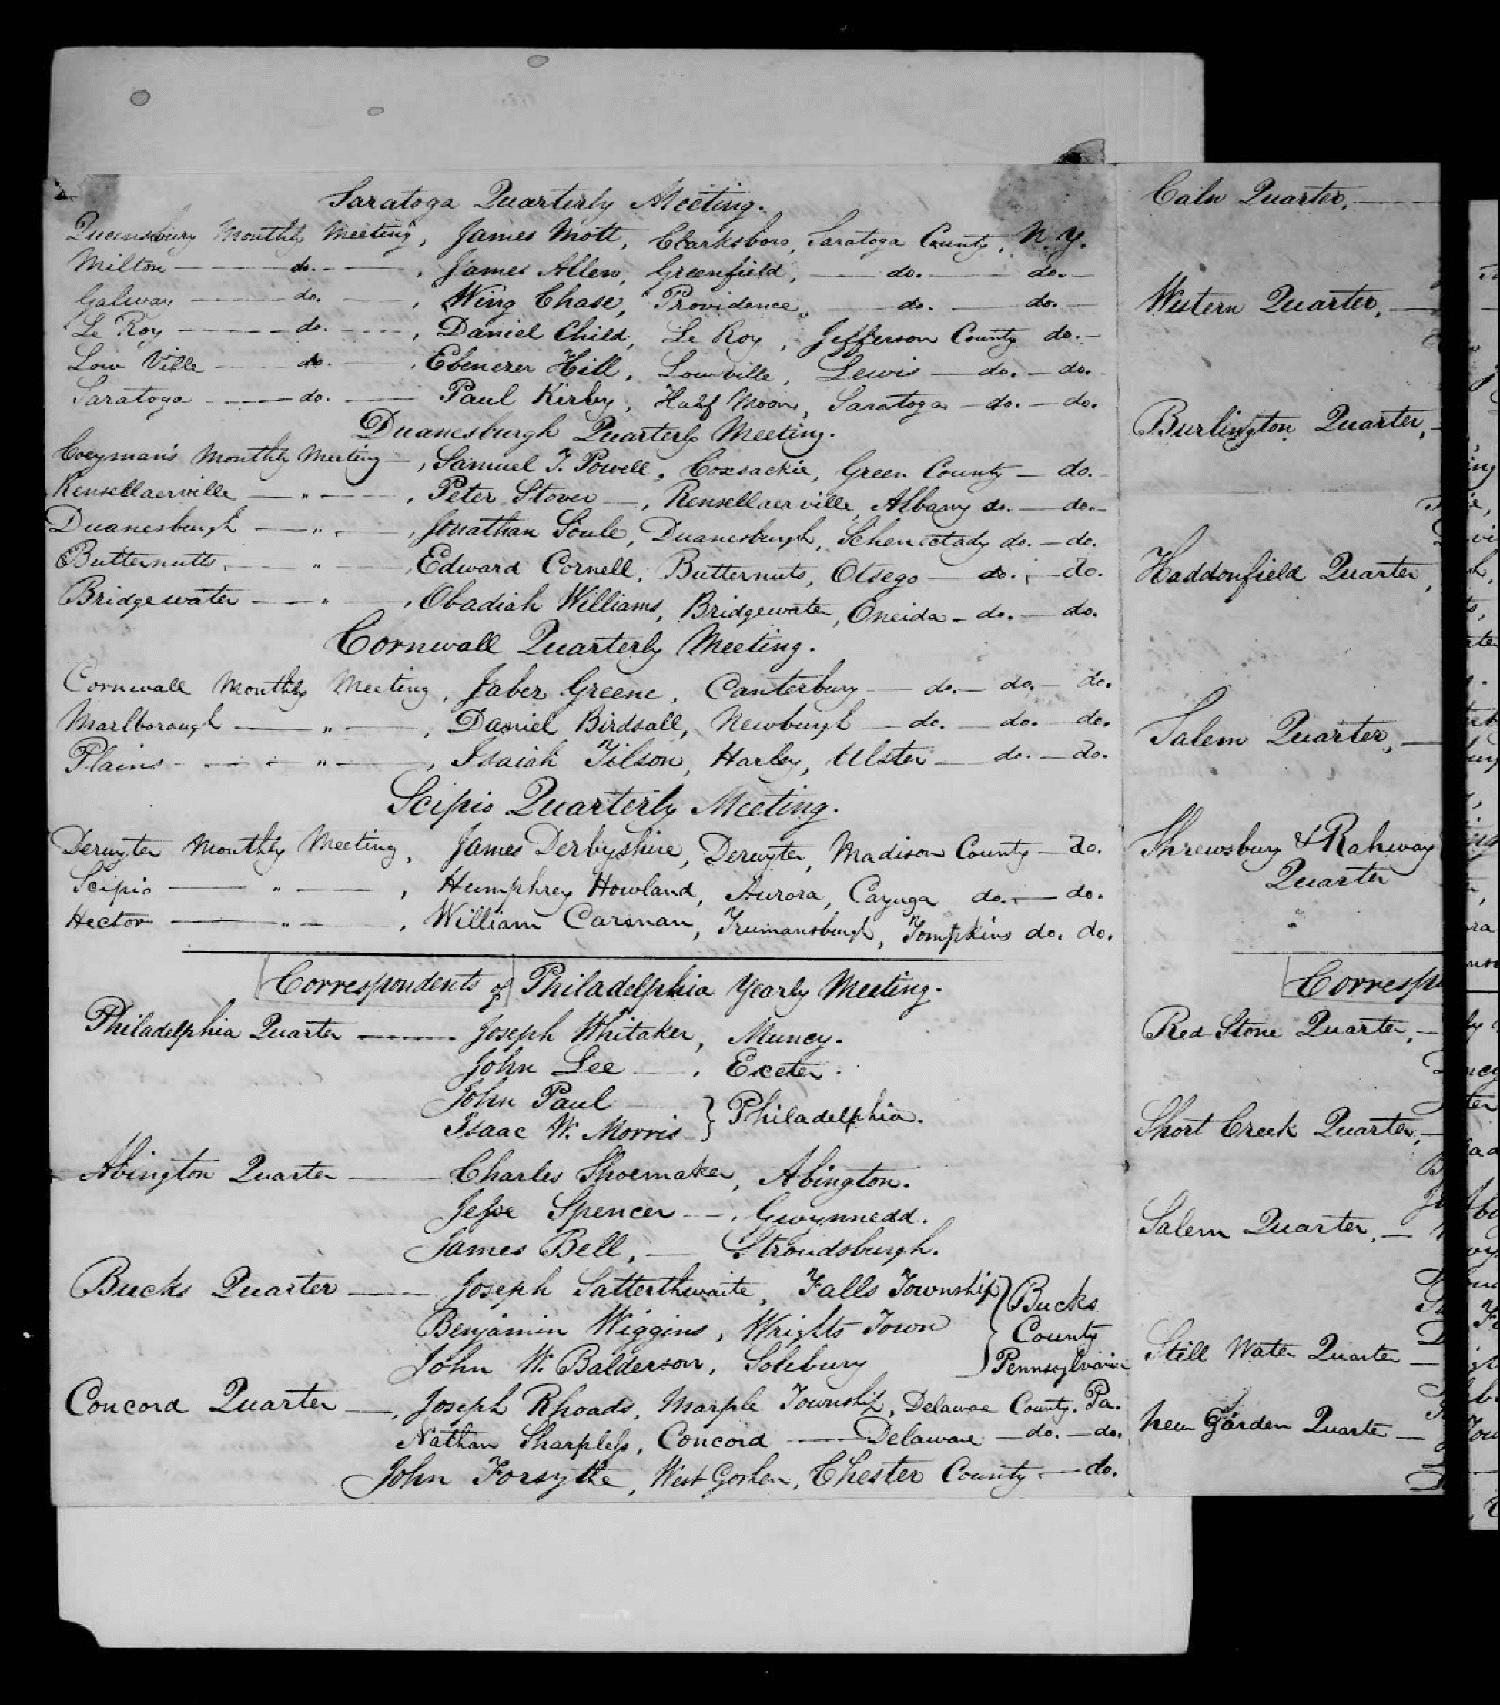 Saratoga Quarterly Meeting.
Queensbury Monthly Meeting, James Mott, Clarksboro, Saratoga County, N.Y.
Milton — do. — , James Allen, Greenfield, — do. — do. —
Galway — do. — , Wing Chase, Providence, — do. — do. —
Le Roy — do. — , Daniel Child, Le Roy, Jefferson County do. —
Low Ville — do. — , Ebenezer Hill, Lowville, Lewis — do. — do.
Saratoga — do. — Paul Kirby, Half Moon, Saratoga — do. — do.
Duanesburgh Quarterly Meeting.
Coeyman's Monthly Meeting —, Samuel T. Powell, Coxsackie, Green County — do.
Rensellaerville — " — , Peter Stover —, Rensellaerville, Albany do. — do. —
Duanesburgh — " — , Jonathan Soule, Duanesburgh, Schenectady do. — do.
Butternutts, — " — , Edward Cornell, Butternuts, Otsego — do. — do.
Bridgewater — " — , Obadiah Williams, Bridgewater, Oneida — do. — do.
Cornwall Quarterly Meeting.
Cornwall Monthly Meeting, Jaber Greene, Canterbury — do. — do. — do.
Marlborough — " — , Daniel Birdsall, Newburgh — do. — do. — do.
Plains — " — , Isaiah Tilson, Harley, Ulster — do. — do.
Scipio Quarterly Meeting.
Deruyter Monthly Meeting, James Derbyshire, Deruyter, Madison County — do.
Scipio — " — , Humphrey Howland, Aurora, Cayuga do. — do.
Hector — " — , William Carman, Trumansburgh, Tompkins do. do.
Correspondents of Philadelphia Yearly Meeting.
Philadelphia Quarter — Joseph Whitaker, Muncy.
John Lee — , Exeter.
John Paul
Isaac W. Morris } Philadelphia.
Abington Quarter — Charles Shoemaker, Abington.
Jesse Spencer — , Gwynnedd.
James Bell, — Stroudsburgh.
Bucks Quarter — Joseph Satterthwaite, Falls Township } Bucks
Benjamin Wiggins, Wrights Town } County
John W. Balderson, Solebury } Pennsylvania
Concord Quarter —, Joseph Rhoads, Marple Township, Delaware County. Pa.
Nathan Sharpless, Concord — Delaware — do. — do.
John Forsythe, West Goshen, Chester County — do.
Caln Quarter, —
Western Quarter, —
Burlington Quarter, —
Haddonfield Quarter,
Salem Quarter, —
Shrewsbury & Rahway
Quarter
"
Corresp
Red Stone Quarter, —
Short Creek Quarter, —
Salem Quarter, —
Still Water Quarter —
New Garden Quarter —